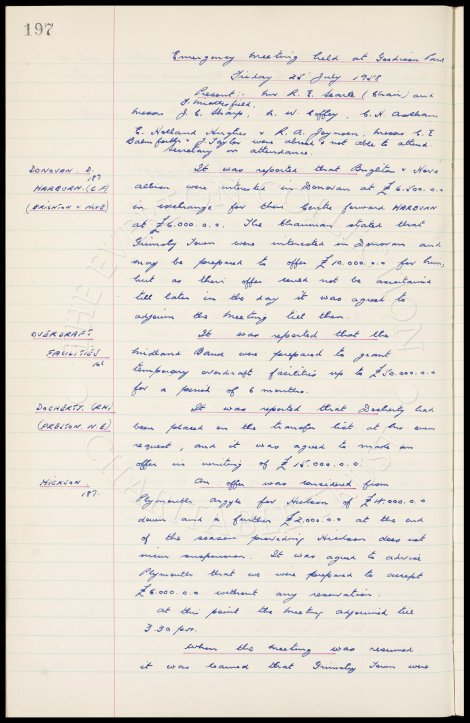 197
Emergency Meeting held at Goodison Park
Friday 25 July 1958
Present:- Mr R. E. Searle (Chair) and
F. Micklesfield,
Messrs J. C. Sharp, N. W. Coffey, C. H. Askham
E. Holland Hughes & R. A. Joynson. Messrs C. E
Balmforth & J. Taylor were abroad & not able to attend.
Secretary in attendance.
DONOVAN. D.
187
MARBURN. (C.F)
(BRIGHTON & HOVE)
It was reported that Brighton & Hove
Albion were interested in Donovan at £6,500.0.0
in exchange for their Centre forward MARBURN
at £6,000.0.0. The Chairman stated that
Grimsby Town were interested in Donovan and
may be prepared to offer £10,000.0.0 for him,
but as their offer could not be ascertained
till later in the day it was agreed to
adjourn the Meeting till then.
OVERDRAFT
FACILITIES
165
It was reported that the
Midland Bank were prepared to grant
temporary overdraft facilities up to £50,000.0.0
for a period of 6 months.
DOCHERTY. (R.H)
(PRESTON. N.E)
It was reported that Docherty had
been placed on the transfer list at his own
request, and it was agreed to make an
offer in writing of £15,000.0.0.
HICKSON
187.
An offer was considered from
Plymouth Argyle for Hickson of £4,000.0.0
down and a further £2,000.0.0 at the end
of the season providing Hickson does not
incur suspension. It was agreed to advise
Plymouth that we were prepared to accept
£6,000.0.0 without any reservation.
At this point the Meeting adjourned till
3.30 p.m.
When the Meeting was resumed
it was learned that Grimsby Town were